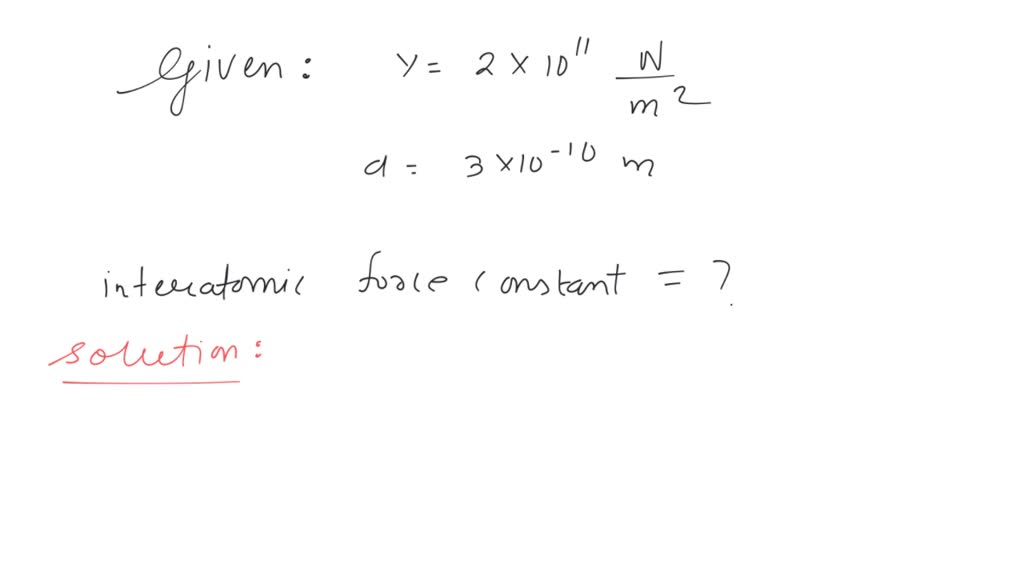 Given: Y = 2 × 10¹¹ N/m²
a = 3 × 10⁻¹⁰ m
interatomic force constant = ?
solution: